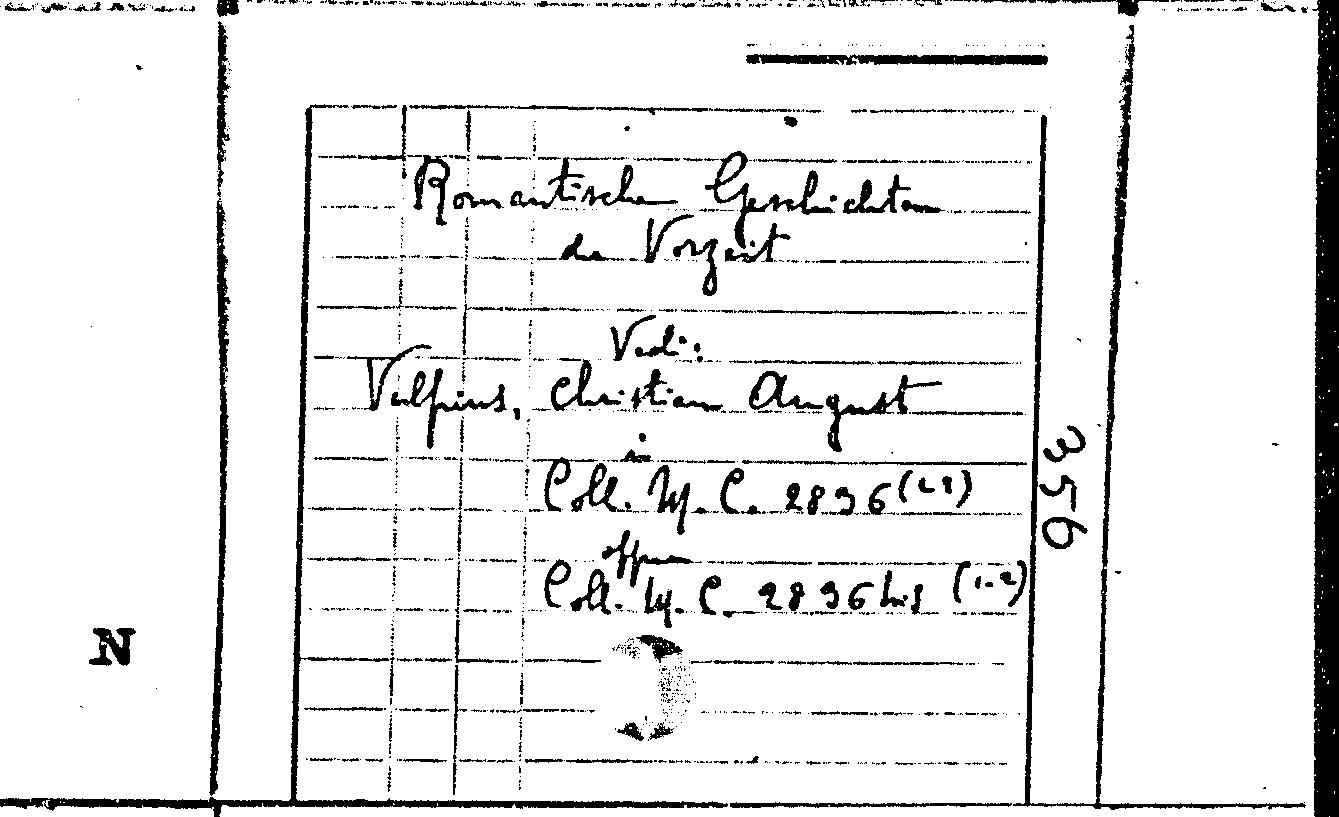 Romantische Geschichten
der Vorzeit
Vedi:
Vulpius, Christian August
in
Coll. M. C. 2896 (1-2)
oppure
Coll. M. C. 2896 bis (1-2)
356
N